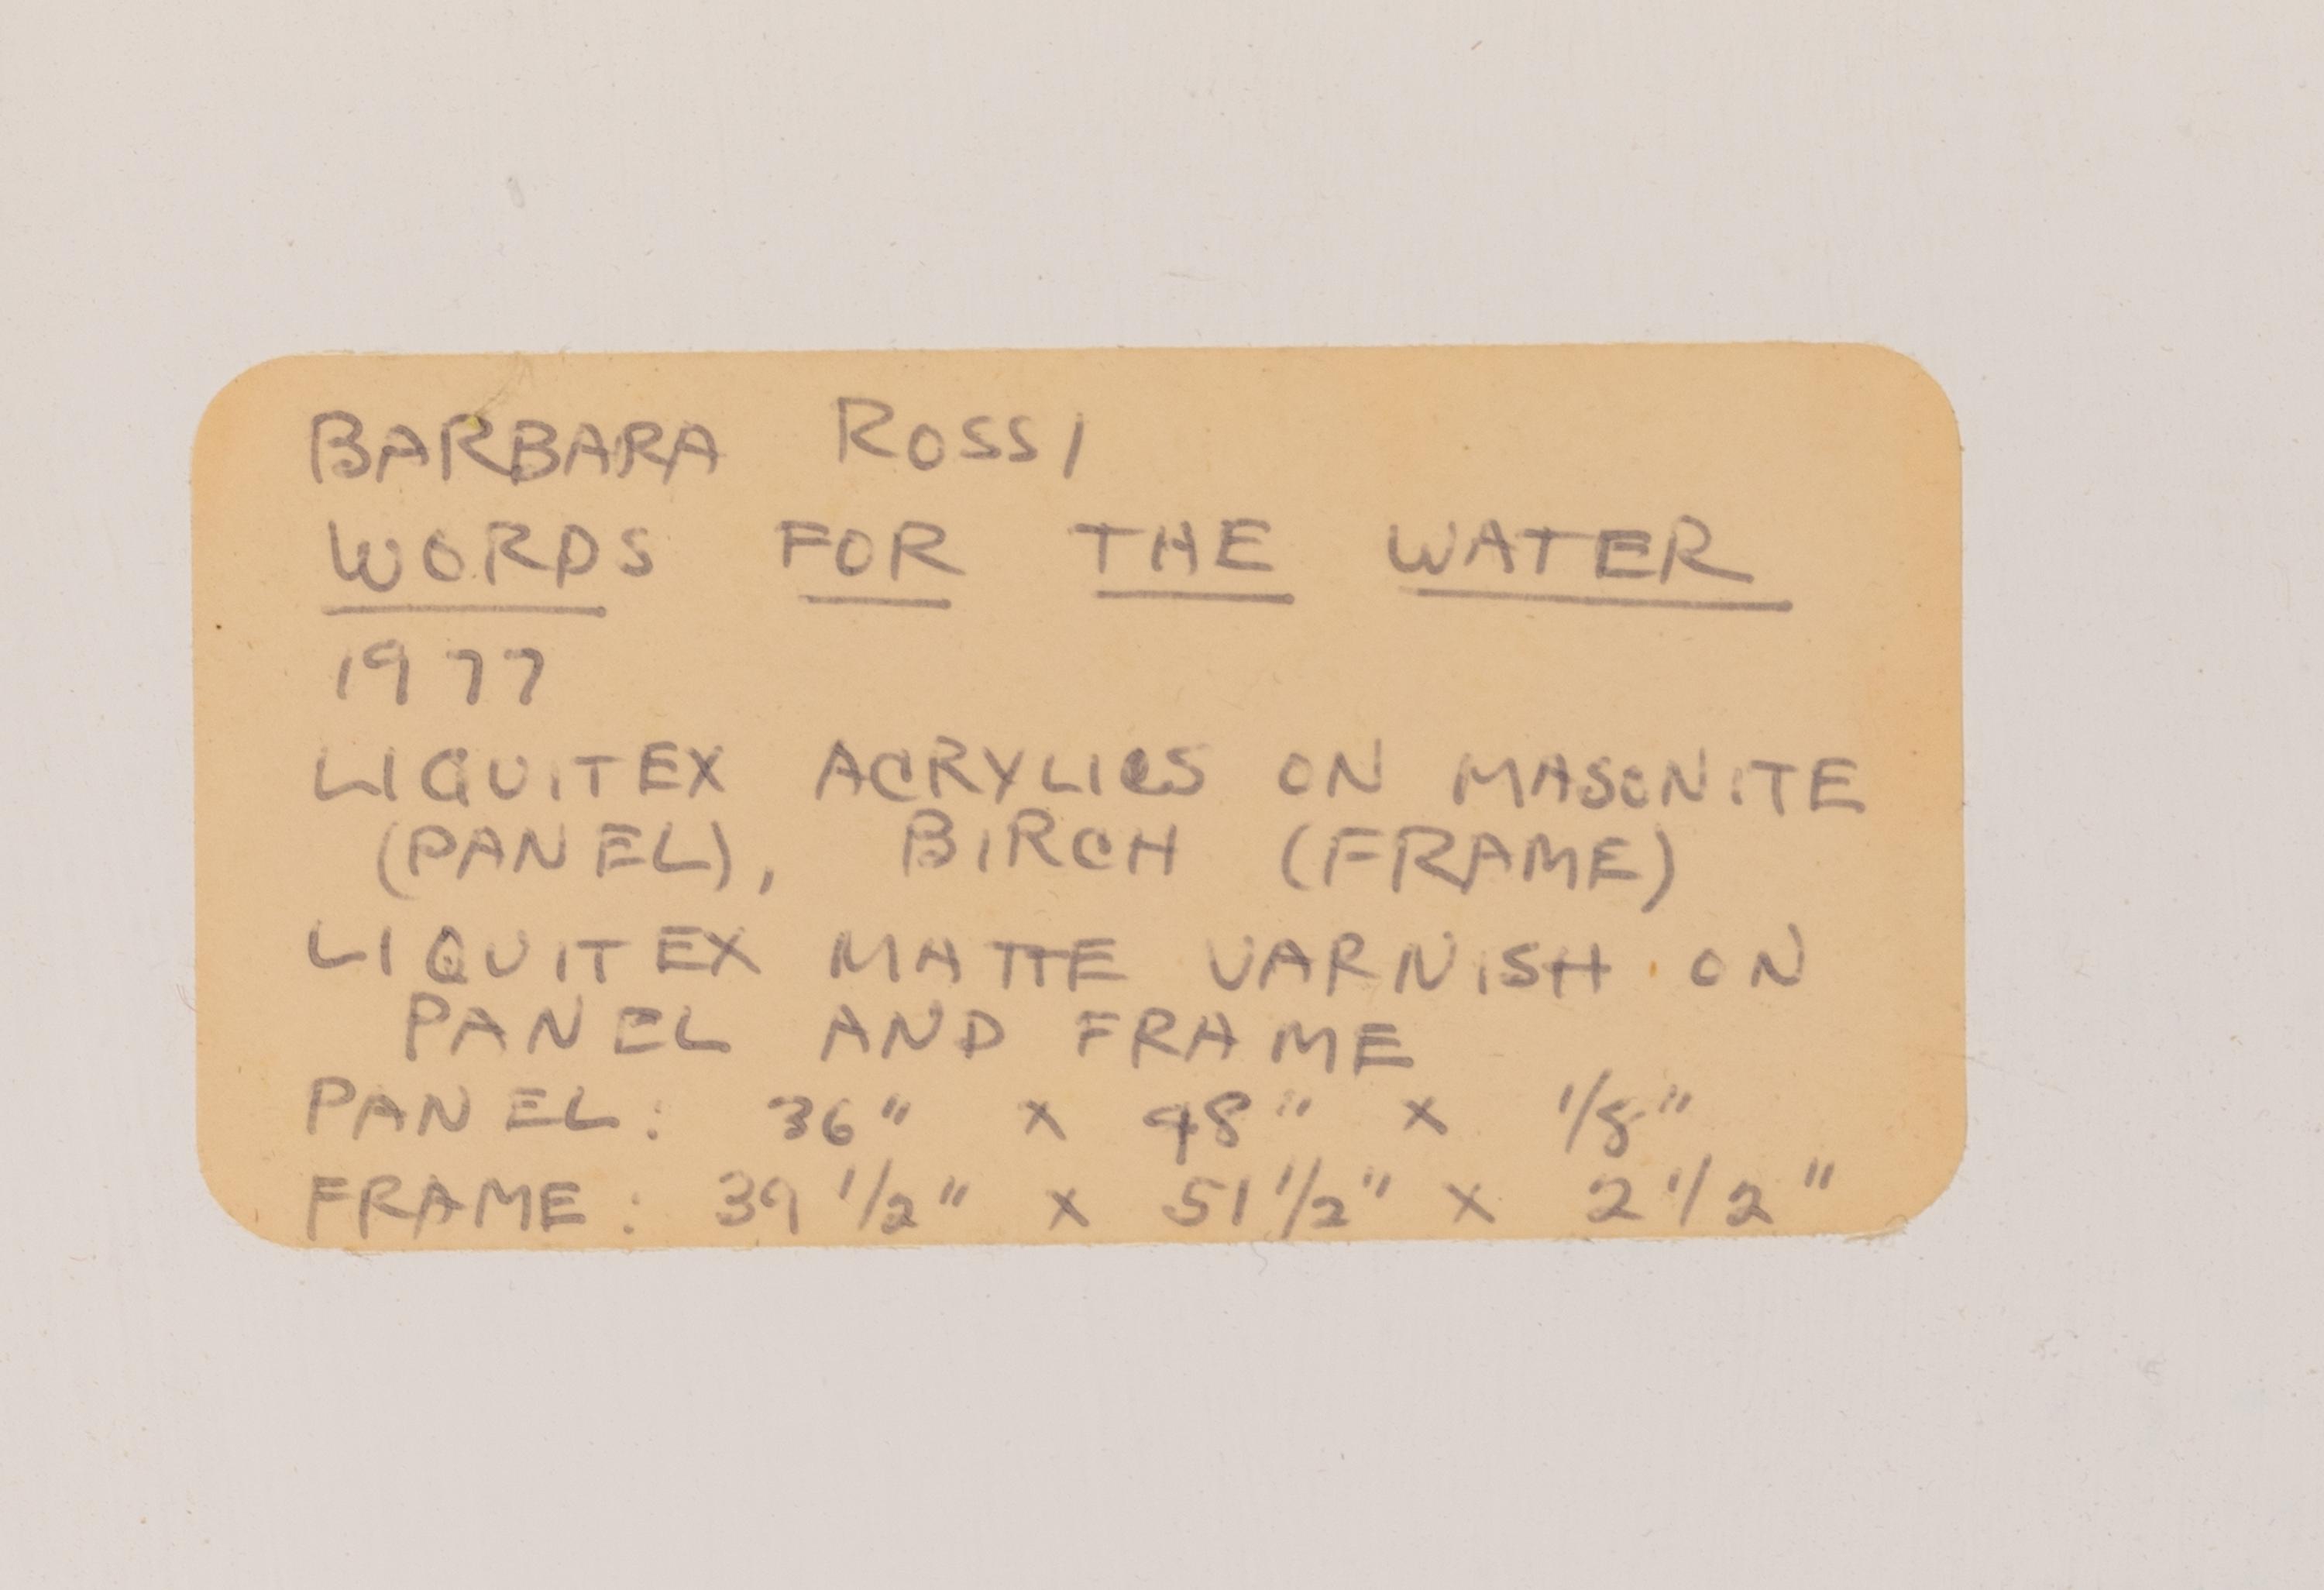 BARBARA ROSSI
WORDS FOR THE WATER
1977
LIQUITEX ACRYLICS ON MASONITE
(PANEL), BIRCH (FRAME)
LIQUITEX MATTE VARNISH ON
PANEL AND FRAME
PANEL: 36" x 48" x 1/8"
FRAME: 39 1/2" x 51 1/2" x 2 1/2"